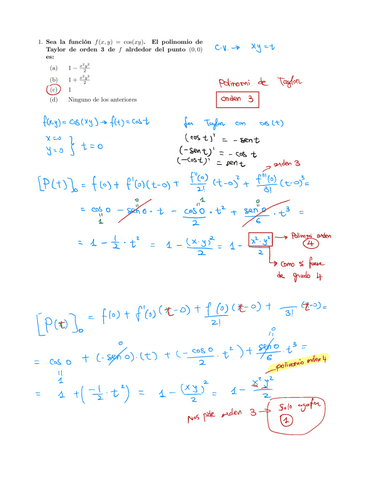 1. Sea la función f(x, y) = cos(xy). El polinomio de
Taylor de orden 3 de f alrededor del punto (0, 0)
es:
(a) 1 − x²y²/2
(b) 1 + x²y²/2
(c) 1
(d) Ninguno de los anteriores
C.V → xy=t
Polinomi de Taylor
orden 3
f(x,y) = cos(xy) → f(t) = cos t
x=0
y=0 } t=0
Taylor en cos(t)
(cos t)' = -sen t
(-sen t)' = -cos t
(-cos t)' = sen t
orden 3
[P(t)]₀ = f(0) + f'(0)(t-0) + f''(0)/2! (t-0)² + f'''(0)/3! (t-0)³ =
= cos 0 - sen 0 · t - cos 0/2 · t² + sen 0/6 · t³ =
= 1 - 1/2 · t² = 1 - (x·y)²/2 = 1 - x²·y²/2
Polinomi orden
4
como si fuera
de grado 4
[P(t)]₀ = f(0) + f'(0)(t-0) + f''(0)/2! (t-0) + /3! (t-0)=
= cos 0 + (-sen 0)·(t) + (-cos 0/2 · t²) + sen 0/6 · t³
polinomio orden 4
= 1 + (-1/2 · t²) = 1 - (xy)²/2 = 1 - x²y²/2
nos pide orden 3 → Solo
1